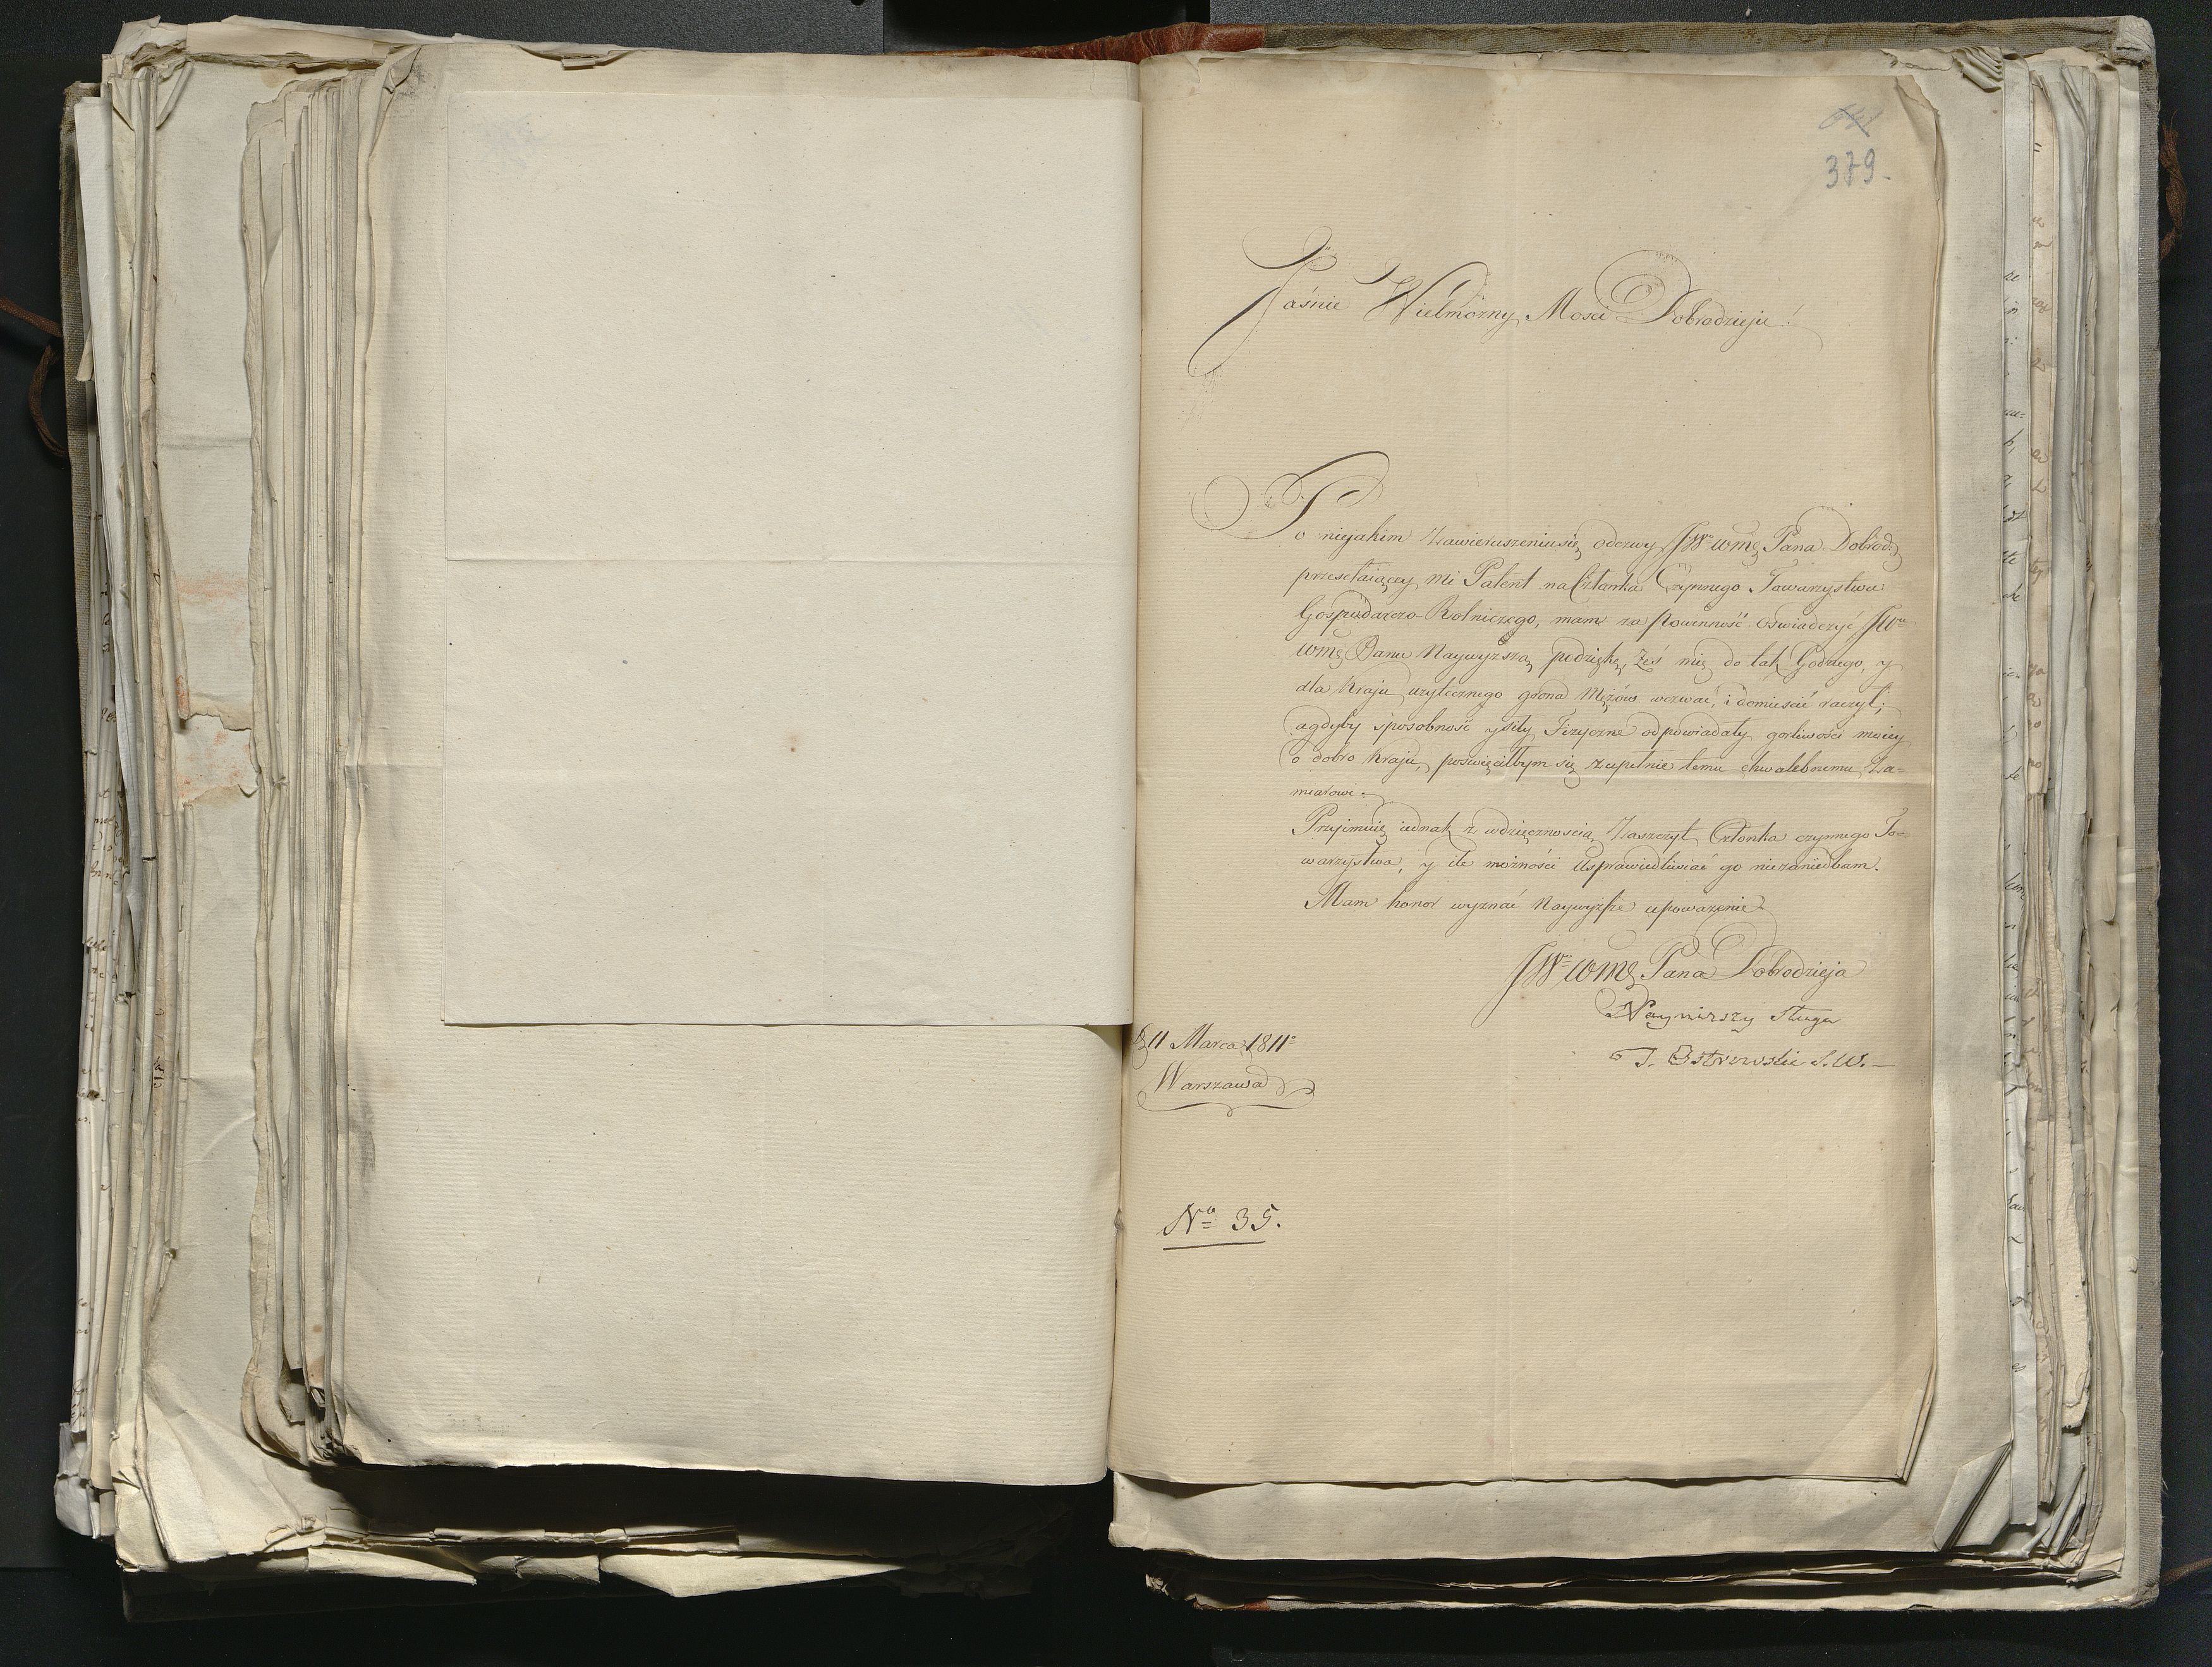 379.
Jaśnie Wielmożny Mosci Dobrodzieju!
Po nieyakim Zawieruszeniu się odezwy JWo WMę Pana Dobrodz:
przesełaiącey mi Patent na Członka Czynnego Towarzystwa
Gospodarczo-Rolniczego, mam za powinność oświadczyć JWu
WMę Panu Naywyższą podziękę, żeś mię do tak Godnego, y
dla Kraju użytecznego grona Mężów wezwać, i domieścić raczył;
a gdyby sposobność y siły Fizyczne odpowiadały gorliwości moiey
o dobro Kraju, poświęciłbym się zupełnie temu chwalebnemu Za-
miarowi.
Przyimuię iednak z wdzięcznością Zaszczyt Członka czynnego To-
warzystwa, y ile możności Usprawiedliwiać go niezaniedbam.
Mam honor wyznać Naywyższe upoważenie
JWo WMę Pana Dobrodzieja
Nayniższy Sługa
T. Ostrowski S.W.
D 11 Marca 1811o
Warszawa
No 35.